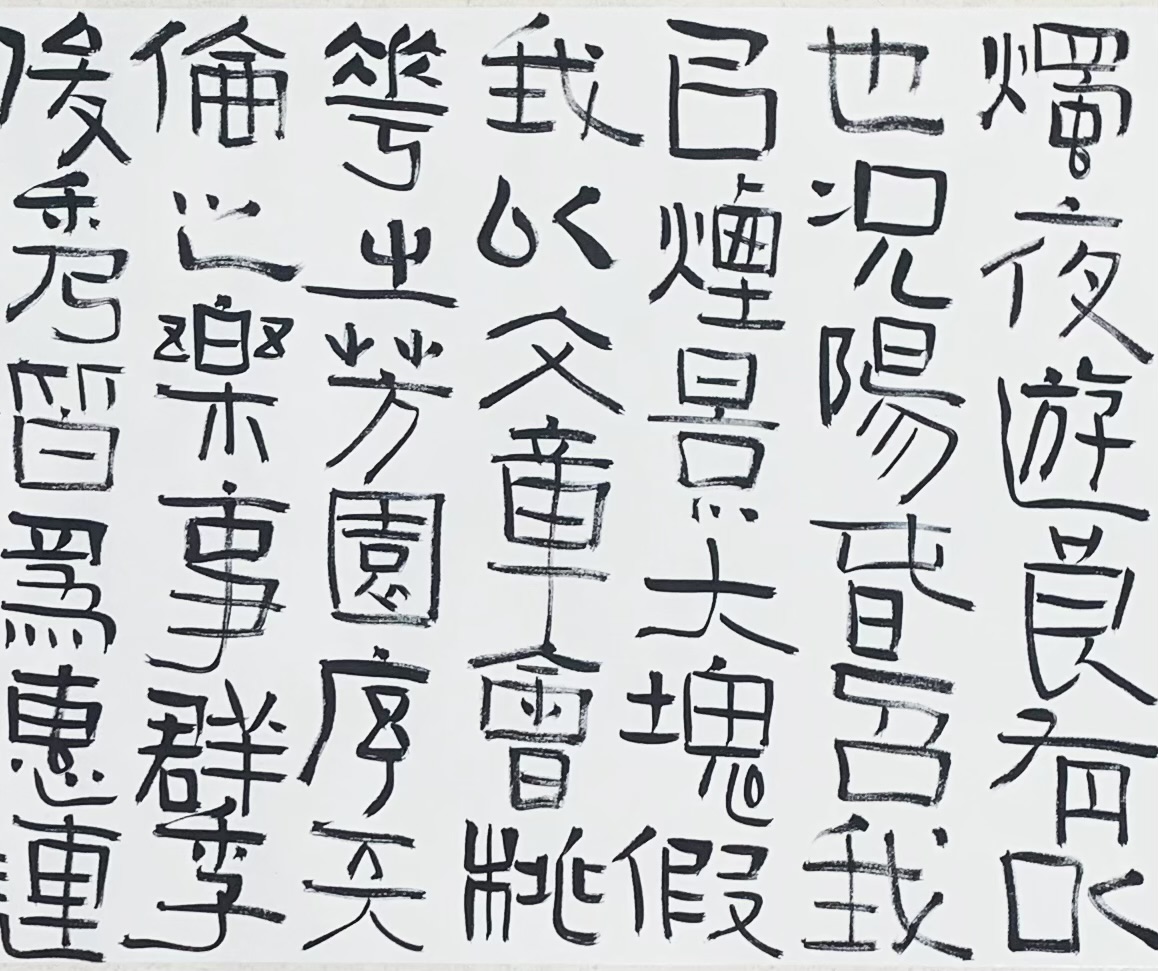 燭夜遊良有以
也況陽春召我
以煙景大塊假
我以文章會桃
花之芳園序天
倫之樂事群季
俊秀皆為惠連